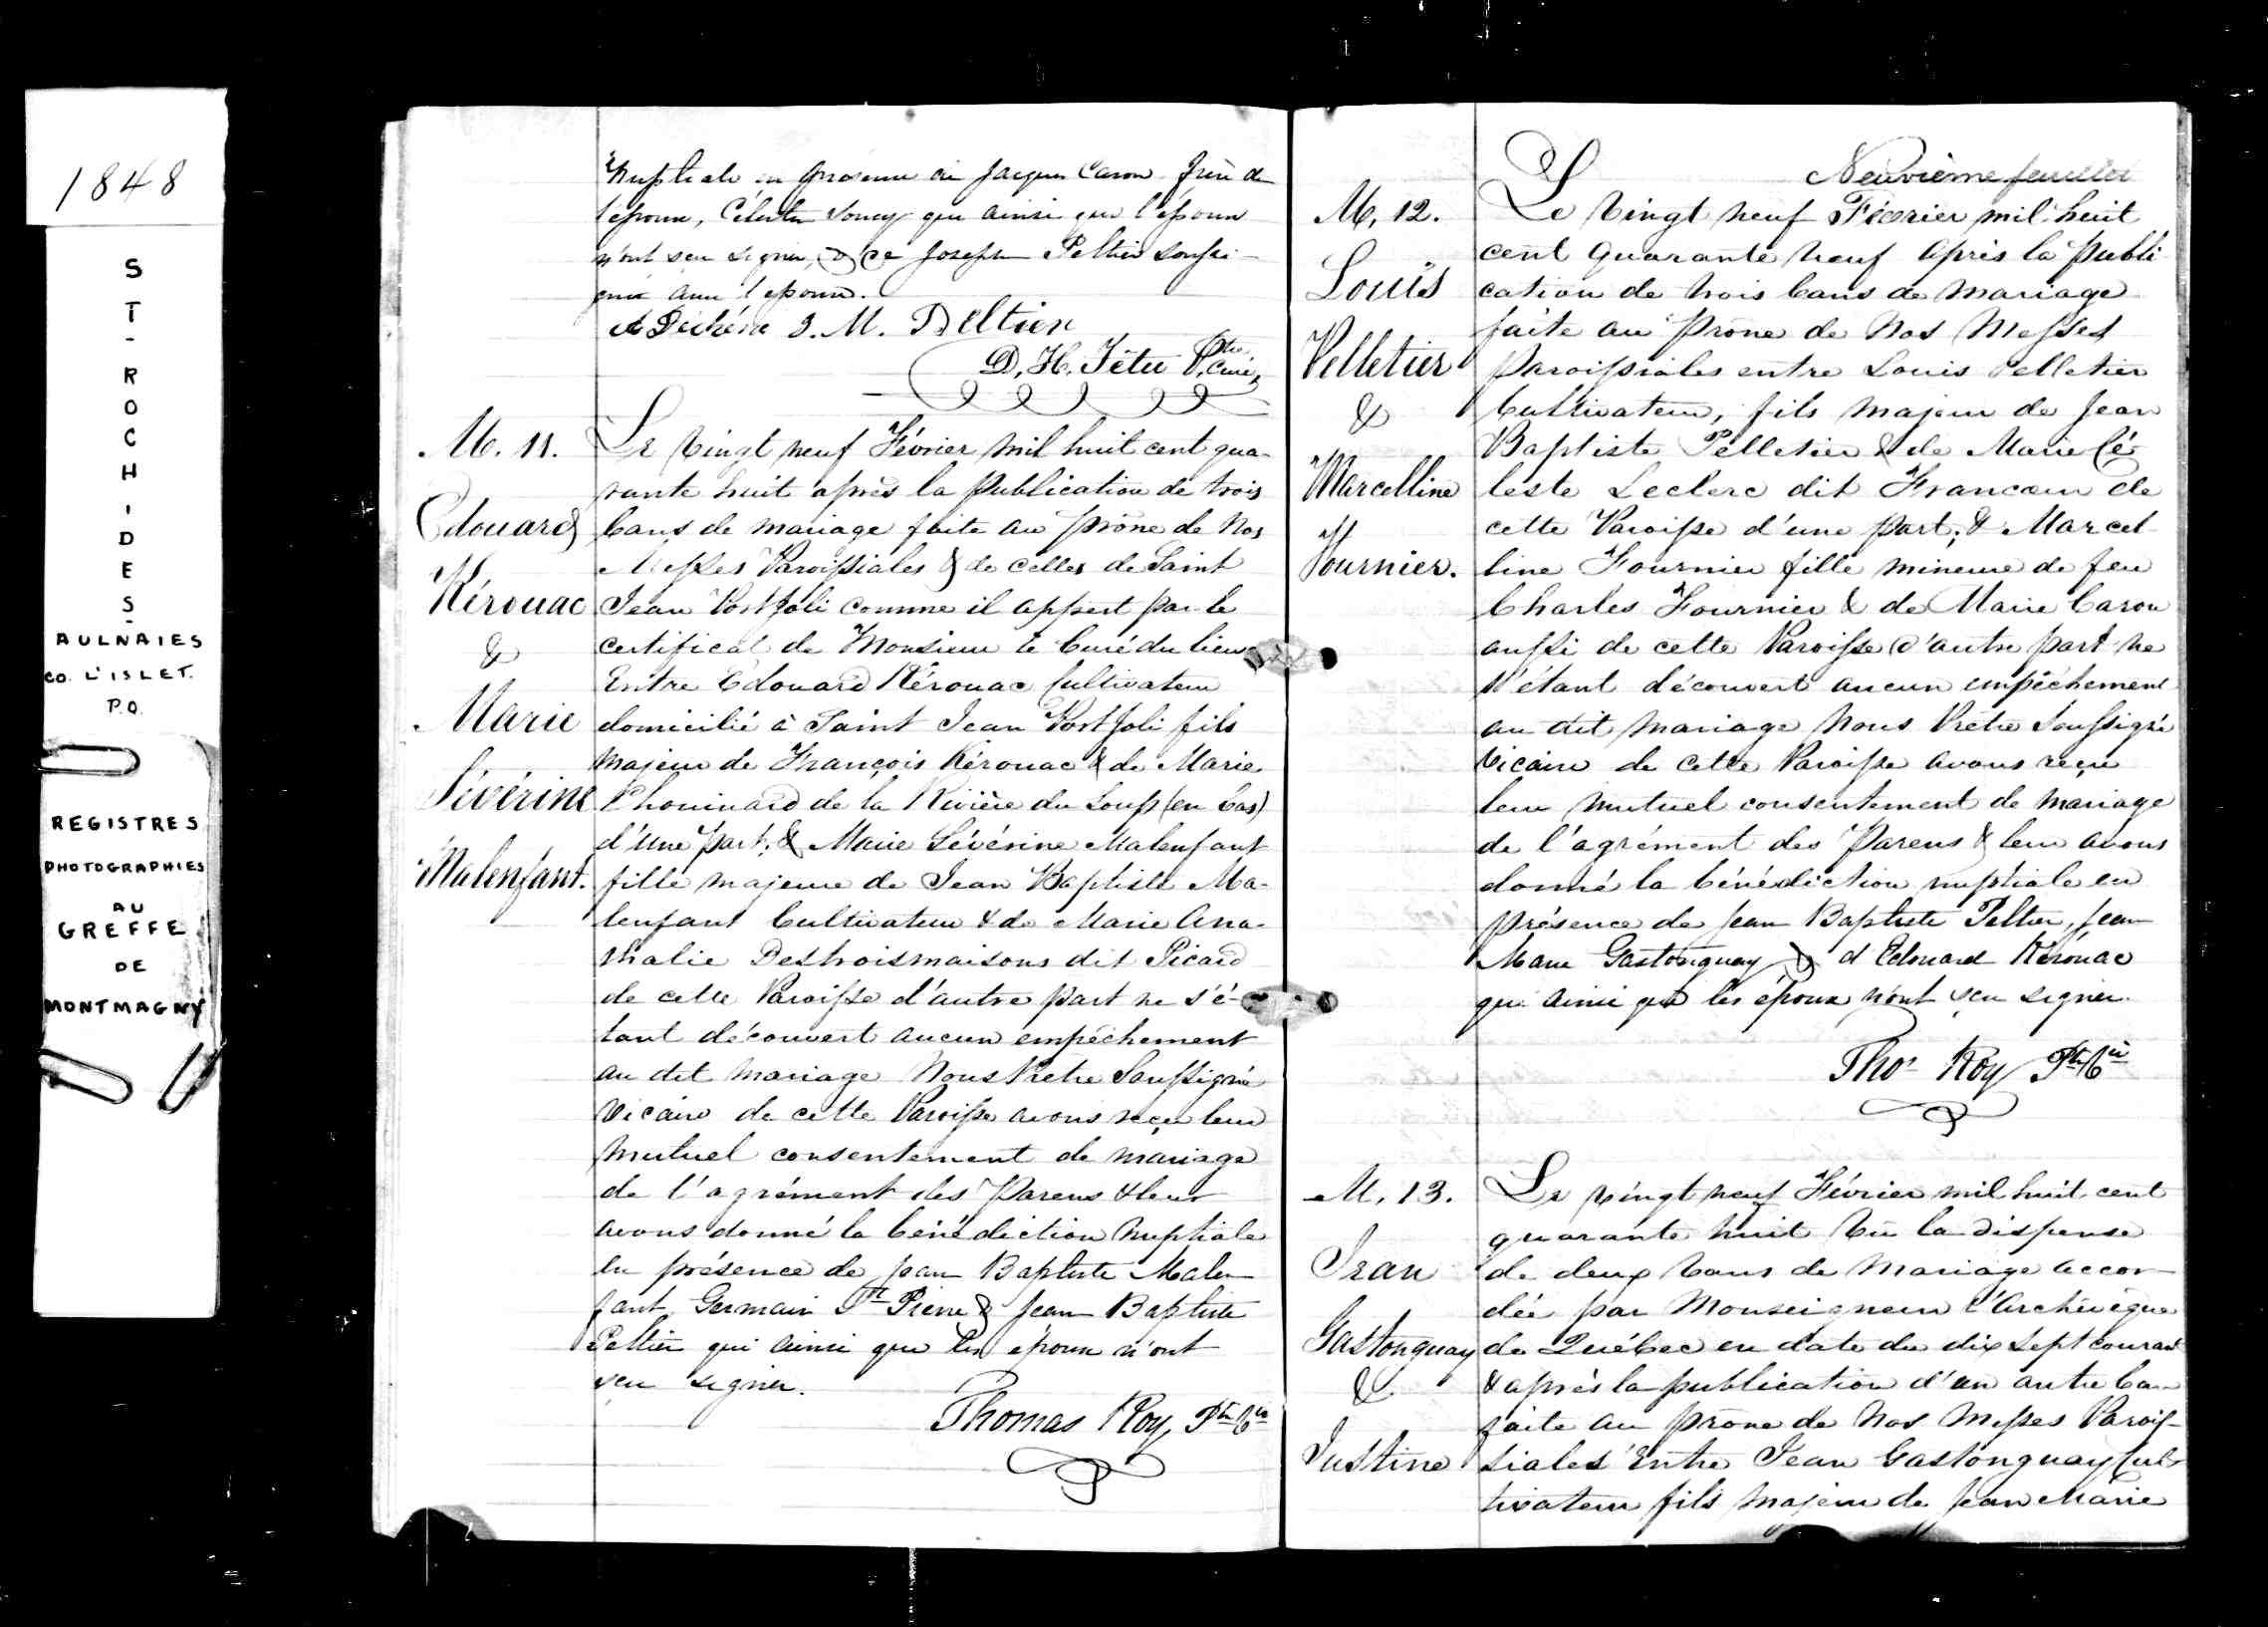 1848
ST-ROCH-DES-
AULNAIES
CO. L'ISLET.
P.Q.
REGISTRES
PHOTOGRAPHIES
AU
GREFFE
DE
MONTMAGNY
Nuptiale en presence de Jacques Caron frère de
l'epoux, Célestin Soucy qui ainsi que l'epoux
n'ont seu signer, & de Joseph Peltier soussi-
gné avec l'epouse.
A Dechéne J. M. Peltier
D. H. Têtu Ptre Curé
M. 11.
Edouard
Kérouac
&
Marie
Sévérine
Malenfant.
Le vingt neuf Février mil huit cent qua-
rante huit après la publication de trois
bans de mariage faite au prône de nos
Messes Paroissiales & de celles de Saint
Jean Port Joli comme il appert par le
certificat de Monsieur le Curé du lieu
Entre Edouard Kérouac Cultivateur
domicilié à Saint Jean Port Joli fils
majeur de François Kérouac & de Marie
Chouinard de la Rivière du Loup (en bas)
d'une part; & Marie Sévérine Malenfant
fille majeure de Jean Baptiste Ma-
lenfant Cultivateur & de Marie Ana-
thalie Destroismaisons dit Picard
de cette Paroisse d'autre part ne s'é-
tant découvert aucun empêchement
au dit mariage Nous Prêtre Soussigné
Vicaire de cette Paroisse avons reçu leur
mutuel consentement de mariage
de l'agrément des Parens & leur
avons donné la bénédiction nuptiale
en présence de Jean Baptiste Malen
fant, Germain St Pierre & Jean Baptiste
Peltier qui ainsi que les epoux n'ont
seu signer.
Thomas Roy, Ptre Vre
Neuvième feuillet
M, 12.
Louis
Pelletier
&
Marcelline
Fournier.
Le vingt neuf Février mil huit
cent quarante neuf après la publi
cation de trois bans de mariage
faite au prône de nos Messes
Paroissiales entre Louis Pelletier
Cultivateur, fils majeur de Jean
Baptiste Pelletier & de Marie Cé-
leste Leclerc dit Francoeur de
cette Paroisse d'une part; & Marcel
line Fournier fille mineure de feu
Charles Fournier & de Marie Caron
aussi de cette Paroisse d'autre part ne
s'étant découvert aucun empêchement
au dit mariage Nous Prêtre Soussigné
Vicaire de cette Paroisse avons reçu
leur mutuel consentement de mariage
de l'agrément des Parens & leur avons
donné la bénédiction nuptiale en
présence de Jean Baptiste Peltier, Jean
Marie Gastonguay & d Edouard Kérouac
qui ainsi que les époux n'ont seu signer.
Thos Roy Ptre Vre
M, 13.
Jean
Gastonguay
&
Justine
Le vingt neuf Février mil huit cent
quarante huit Vu la dispense
de deux bans de Mariage accor-
dée par Monseigneur l'Archévêque
de Québec en date du dix sept courant
& après la publication d'un autre ban
faite au prône de nos messes Parois-
siales Entre Jean Gastonguay Cul-
tivateur fils majeur de Jean Marie